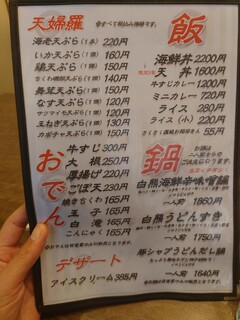 天婦羅
海老天ぷら(1本) 220円
いか天ぷら(1個) 160円
鶏天ぷら(1個) 150円
150円
舞茸天ぷら(1個) 150円
なす天ぷら(1個) 120円
サツマイモ天ぷら(1個) 130円
玉ねぎ天ぷら(1個) 130円
カボチャ天ぷら(1個) 150円
おでん
牛すじ 300円
大根 250円
厚揚げ 220円
ごぼ天 230円
焼きちくわ 165円
玉子 165円
白滝 165円
こんにゃく 165円
デザート
アイスクリーム 385円
飯
海鮮丼 2200円
天丼 1600円
牛すじカレー 1200円
ミニカレー 720円
ライス 280円
ライス(小) 220円
55円
鍋
白熊海鮮辛味噌鍋
一人前 1860円
白熊うどんすき
一人前 1750円
豚シャブうどんだし鍋
一人前 1640円